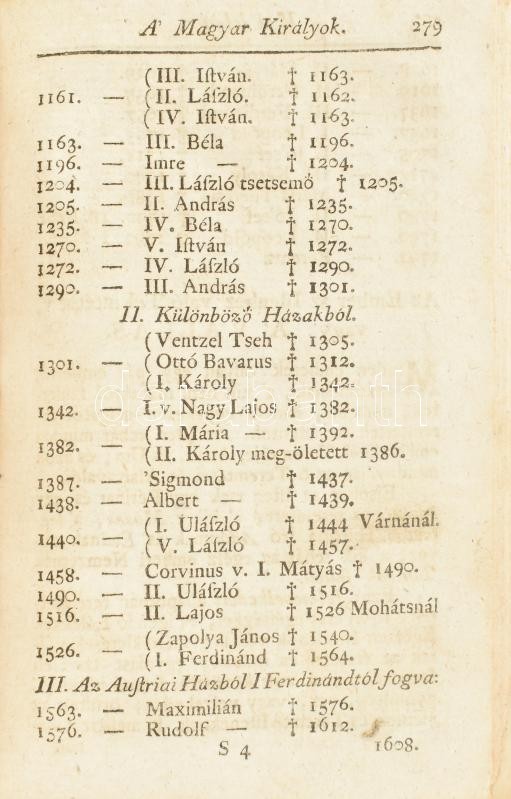 A' Magyar Királyok. 279
(III. Iſtván. † 1163.
1161. — (II. Láſzló. † 1162.
(IV. Iſtván. † 1163.
1163. — III. Béla † 1196.
1196. — Imre — † 1204.
1204. — III. Láſzló tsetsemő † 1205.
1205. — II. András † 1235.
1235. — IV. Béla † 1270.
1270. — V. Iſtván † 1272.
1272. — IV. Láſzló † 1290.
1290. — III. András † 1301.
II. Különböző Házakból.
(Ventzel Tseh † 1305.
1301. — (Ottó Bavarus † 1312.
(I. Károly † 1342.
1342. — I. v. Nagy Lajos † 1382.
(I. Mária — † 1392.
1382. — (II. Károly meg-öletett 1386.
1387. — 'Sigmond † 1437.
1438. — Albert — † 1439.
(I. Uláſzló † 1444 Várnánál.
1440. — (V. Láſzló † 1457.
1458. — Corvinus v. I. Mátyás † 1490.
1490. — II. Uláſzló † 1516.
1516. — II. Lajos † 1526 Mohátsnál
(Zapolya János † 1540.
1526. — (I. Ferdinánd † 1564.
III. Az Auſtriai Házból I Ferdinándtól fogva:
1563. — Maximilián † 1576.
1576. — Rudolf — † 1612.
S 4 1608.